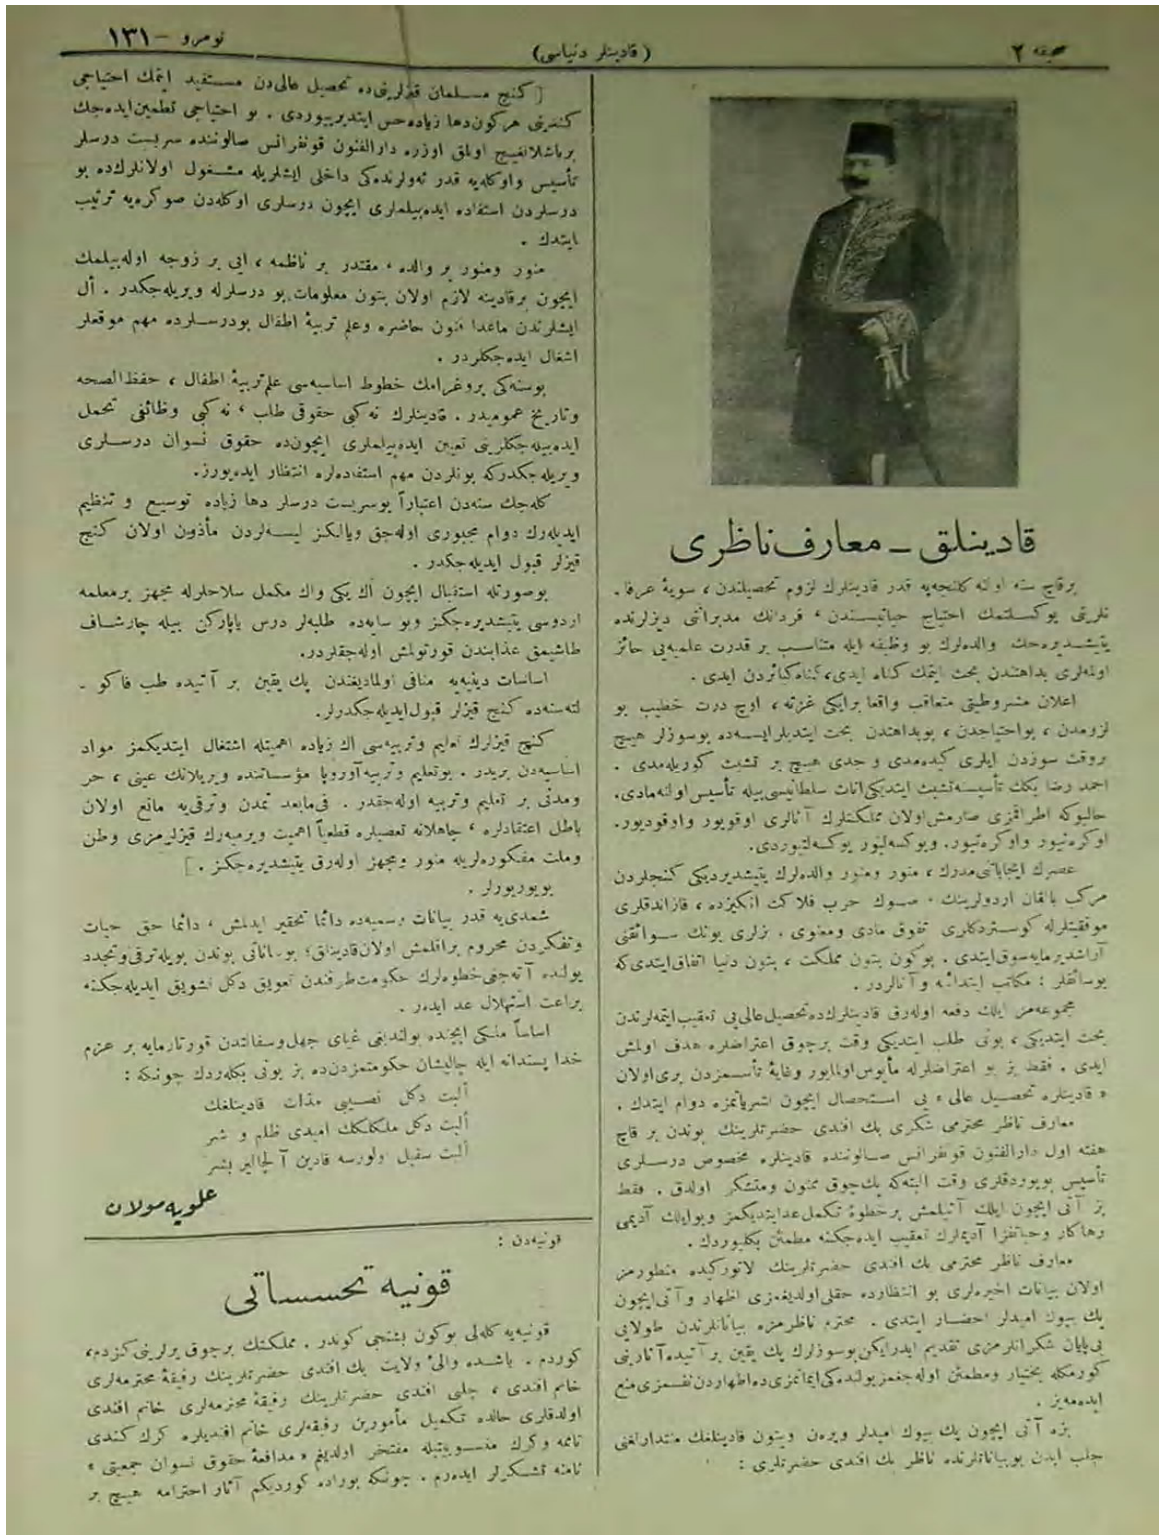 صحیفه ٢
(قادینلر دنیاسی)
نومرو – ١٣١
قادینلق – معارف ناظری
برقاچ سنه اولنه کلنجه‌یه قدر قادینلرك لزوم تحصیلندن، سویهٔ عرفا-
نلرینی یوکسلتمك احتیاج حیاتیسندن، فردانك مدبراننی دیزلرنده
یتیشدیره‌جك والده‌لرك بو وظیفه ایله متناسب بر قدرت علمیه‌یی حائز
اولمه‌لری بداهتندن بحث ایتمك کناه ایدی، کناه کبائردن ایدی.
اعلان مشروطیتی متعاقب واقعا برایکی غزته، اوچ درت خطیب بو
لزومدن، بواحتیاجدن، بوبداهتدن بحث ایتدیلرایسه‌ده بوسوزلر هیچ
بروقت سوزدن ایلری کیده‌مدی و جدی هیچ بر تشبث کوریله‌مدی.
احمد رضا بكك تأسیسنه‌تشبث ایتدیکی‌اناث سلطانیسی بیله تأسیس اولنه‌مادی.
حالبوکه اطرافمزی صارمش‌اولان مملکتلرك آنالری اوقویور واوقودیور.
اوکره‌نیور واوکره‌تیور. ویوکسه‌لیور یوکسه‌لتیوردی.
عصرك ایجاباتنی‌مدرك، منور ومنور والده‌لرك یتیشدیردیکی کنجلردن
مرکب بالقان اردولرینك صوك حرب فلاکت انکیزده، قازاندقلری
موفقیتلرله کوستردکلری تفوق مادی ومعنوی بزلری بونك سوائقنی
آراشدیرمایه‌سوق‌ایتدی. بوکون بتون مملکت، بتون دنیا اتفاق‌ایتدی‌که
بوسائقلر: مکاتب ابتدائیه و آنالردر.
مجموعه‌مز ایلك دفعه اوله‌رق قادینلرك‌ده‌تحصیل عالی‌یی تعقیب‌ایتمه‌لرندن
بحث ایتدیکی، بونی طلب ایتدیکی وقت برچوق اعتراضلره هدف اولمش
ایدی. فقط بز بو اعتراضلرله مأیوس‌اولمایور وغایهٔ تأسسمزدن بری‌اولان
«قادینلره تحصیل عالی»یی استحصال ایچون نشریاتمزه دوام ایتدك.
معارف ناظر محترمی شکری بك افندی حضرتلرینك بوندن بر قاچ
هفته اول دارالفنون قونفرانس صالوننده قادینلره مخصوص درسلری
تأسیس بویوردقلری وقت البته‌که پك‌چوق ممنون ومتشکر اولدق. فقط
بز آتی ایچون ایلك آتیلمش برخطوهٔ تکمل‌عدایتدیکمز وبوایلك آدیمی
رهاکار وحیاتفزا آدیملرك تعقیب ایده‌جکنه مطمئن بکلیوردك.
معارف ناظر محترمی بك افندی حضرتلرینك لاتورکیده منظورمز
اولان بیانات اخیره‌لری بو انتظارده حقلی‌اولدیغمزی اظهار و آتی‌ایچون
پك بیوك امیدلر احضار ایتدی. محترم ناظرمزه بیاناتلرندن طولایی
بی‌پایان شکرانلرمزی تقدیم ایدرایکن‌بوسوزلرك پك یقین برآتیده‌آثارینی
کورمکله بختیار ومطمئن اوله‌جغمز یولنده‌کی‌ایمانمزی‌ده‌اظهاردن نفسمزی‌منع
ایده‌مه‌یز.
بزه آتی ایچون پك بیوك امیدلر ویره‌ن وبتون قادینلغك منتدارلغنی
جلب ایدن بوبیاناتلرنده ناظر بك افندی حضرتلری:
[کنج مسلمان قیزلرینی‌ده تحصیل عالی‌دن مستفید ایتمك احتیاجی
کندینی هرکون‌دها زیاده‌حس ایتدیرییوردی. بو احتیاجی تطمین‌ایده‌جك
برباشلانغیج اولمق اوزره دارالفنون قونفرانس صالوننده سربست درسلر
تأسیس واوکله‌یه قدر ئه‌ولرنده‌کی داخلی ایشلریله مشغول اولانلرك‌ده بو
درسلردن استفاده ایده‌بیلملری ایچون درسلری اوکله‌دن صوکره‌یه ترتیب
ایتدك.
منور ومنور بر والده، مقتدر بر ناظمه، ایی بر زوجه اوله‌بیلمك
ایچون برقادینه لازم اولان بتون معلومات بو درسلرله ویریله‌جکدر. أل
ایشلرندن ماعدا فنون حاضره وعلم تربیهٔ اطفال بودرسلرده مهم موقعلر
اشغال ایده‌جکلردر.
بوسنه‌کی پروغرامك خطوط اساسیه‌سی علم‌تربیهٔ اطفال، حفظ‌الصحه
وتاریخ عمومیدر. قادینلرك نه‌کبی حقوقی طلب، نه‌کبی وظائفی تحمل
ایده‌بیله‌جکلرینی تعیین ایده‌بیلملری ایچون‌ده حقوق نسوان درسلری
ویریله‌جکدرکه بونلردن مهم استفاده‌لره انتظار ایدییورز.
کله‌جك سنه‌دن اعتباراً بوسربست درسلر دها زیاده توسیع و تنظیم
ایدیله‌رك دوام مجبوری اوله‌جق ویالکز لیسه‌لردن مأذون اولان کنج
قیزلر قبول ایدیله‌جکدر.
بوصورتله استقبال ایچون اك یکی واك مکمل سلاحلرله مجهز برمعلمه
اردوسی یتیشدیره‌جکز وبو سایه‌ده طلبه‌لر درس یاپارکن بیله چارشاف
طاشیمق عذابندن قورتولمش اوله‌جقلردر.
اساسات دینیه‌یه منافی اولمادیغندن پك یقین بر آتیده طب فاکو-
لته‌سنه‌ده کنج قیزلر قبول‌ایدیله‌جکدرلر.
کنج قیزلرك تعلیم وتربیه‌سی اك زیاده اهمیتله اشتغال ایتدیکمز مواد
اساسیه‌دن بریدر. بوتعلیم وتربیه‌آوروپا مؤسساتنده ویریلانك عینی، حر
ومدنی بر تعلیم وتربیه اوله‌جقدر. فی‌مابعد تمدن وترقی‌یه مانع اولان
باطل اعتقادلره، جاهلانه تعصبلره قطعیاً اهمیت ویرمیه‌رك قیزلریمزی وطن
وملت مفکوره‌لریله منور ومجهز اوله‌رق یتیشدیره‌جکز.]
بویوریورلر.
شمدی‌یه قدر بیانات رسمیه‌ده دائما تحقیر ایدلمش، دائما حق حیات
وتفکردن محروم براقلمش اولان‌قادینلق؛ بوبیاناتی بوندن بویله‌ترقی‌وتجدد
یولنده آته‌جغی‌خطوه‌لرك حکومت‌طرفندن تعویق دکل تشویق ایدیله‌جکنه
براعت استهلال عد ایدر.
اساساً ملتی ایچنده بولندیغی غیای جهل‌وسفالتدن قورتارمایه بر عزم
خدا پسندانه ایله چالیشان حکومتمزدن‌ده بز بونی بکله‌ردك چونکه:
ألبت دکل نصیبی مذلت قادینلغك
ألبت دکل ملکلكك امیدی ظلم و شر
ألبت سفیل اولورسه قادین آلچالیر بشر
علویه مولان
قونیه‌دن:
قونیه تحسساتی
قونیه‌یه کله‌لی بوکون بشنجی کوندر. مملکتك برچوق یرلرینی کزدم،
کوردم. باشده والیٔ ولایت بك افندی حضرتلرینك رفیقهٔ محترمه‌لری
خانم افندی، چلبی افندی حضرتلرینك رفیقهٔ محترمه‌لری خانم افندی
اولدقلری حالده تکمیل مأمورین رفیقه‌لری خانم افندیلره کرك کندی
ناممه وکرك منسوبیتیله مفتخر اولدیغم «مدافعهٔ حقوق نسوان جمعیتی»
نامنه تشکرلر ایده‌رم. چونکه بوراده کوردیکم آثار احترامه هیچ بر